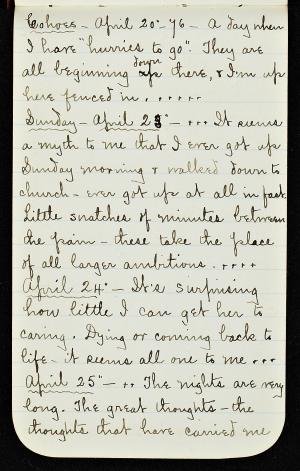 Echoes - April 20" - 76 - A day when
I have "hurries to go". They are
all beginning down up there, & I'm up
here fenced in . . . . . .
Sunday - April 23" - ... It seems
a myth to me that I ever got up
Sunday morning & walked down to
church - ever got up at all in fact.
Little snatches of minutes between
the pain - these take the place
of all larger ambitions . . . . .
April 24" - It's surprising
how little I can get her to
caring. Dying or coming back to
life - it seems all one to me ...
April 25" - .. The nights are very
long. The great thoughts - the
thoughts that have carried me